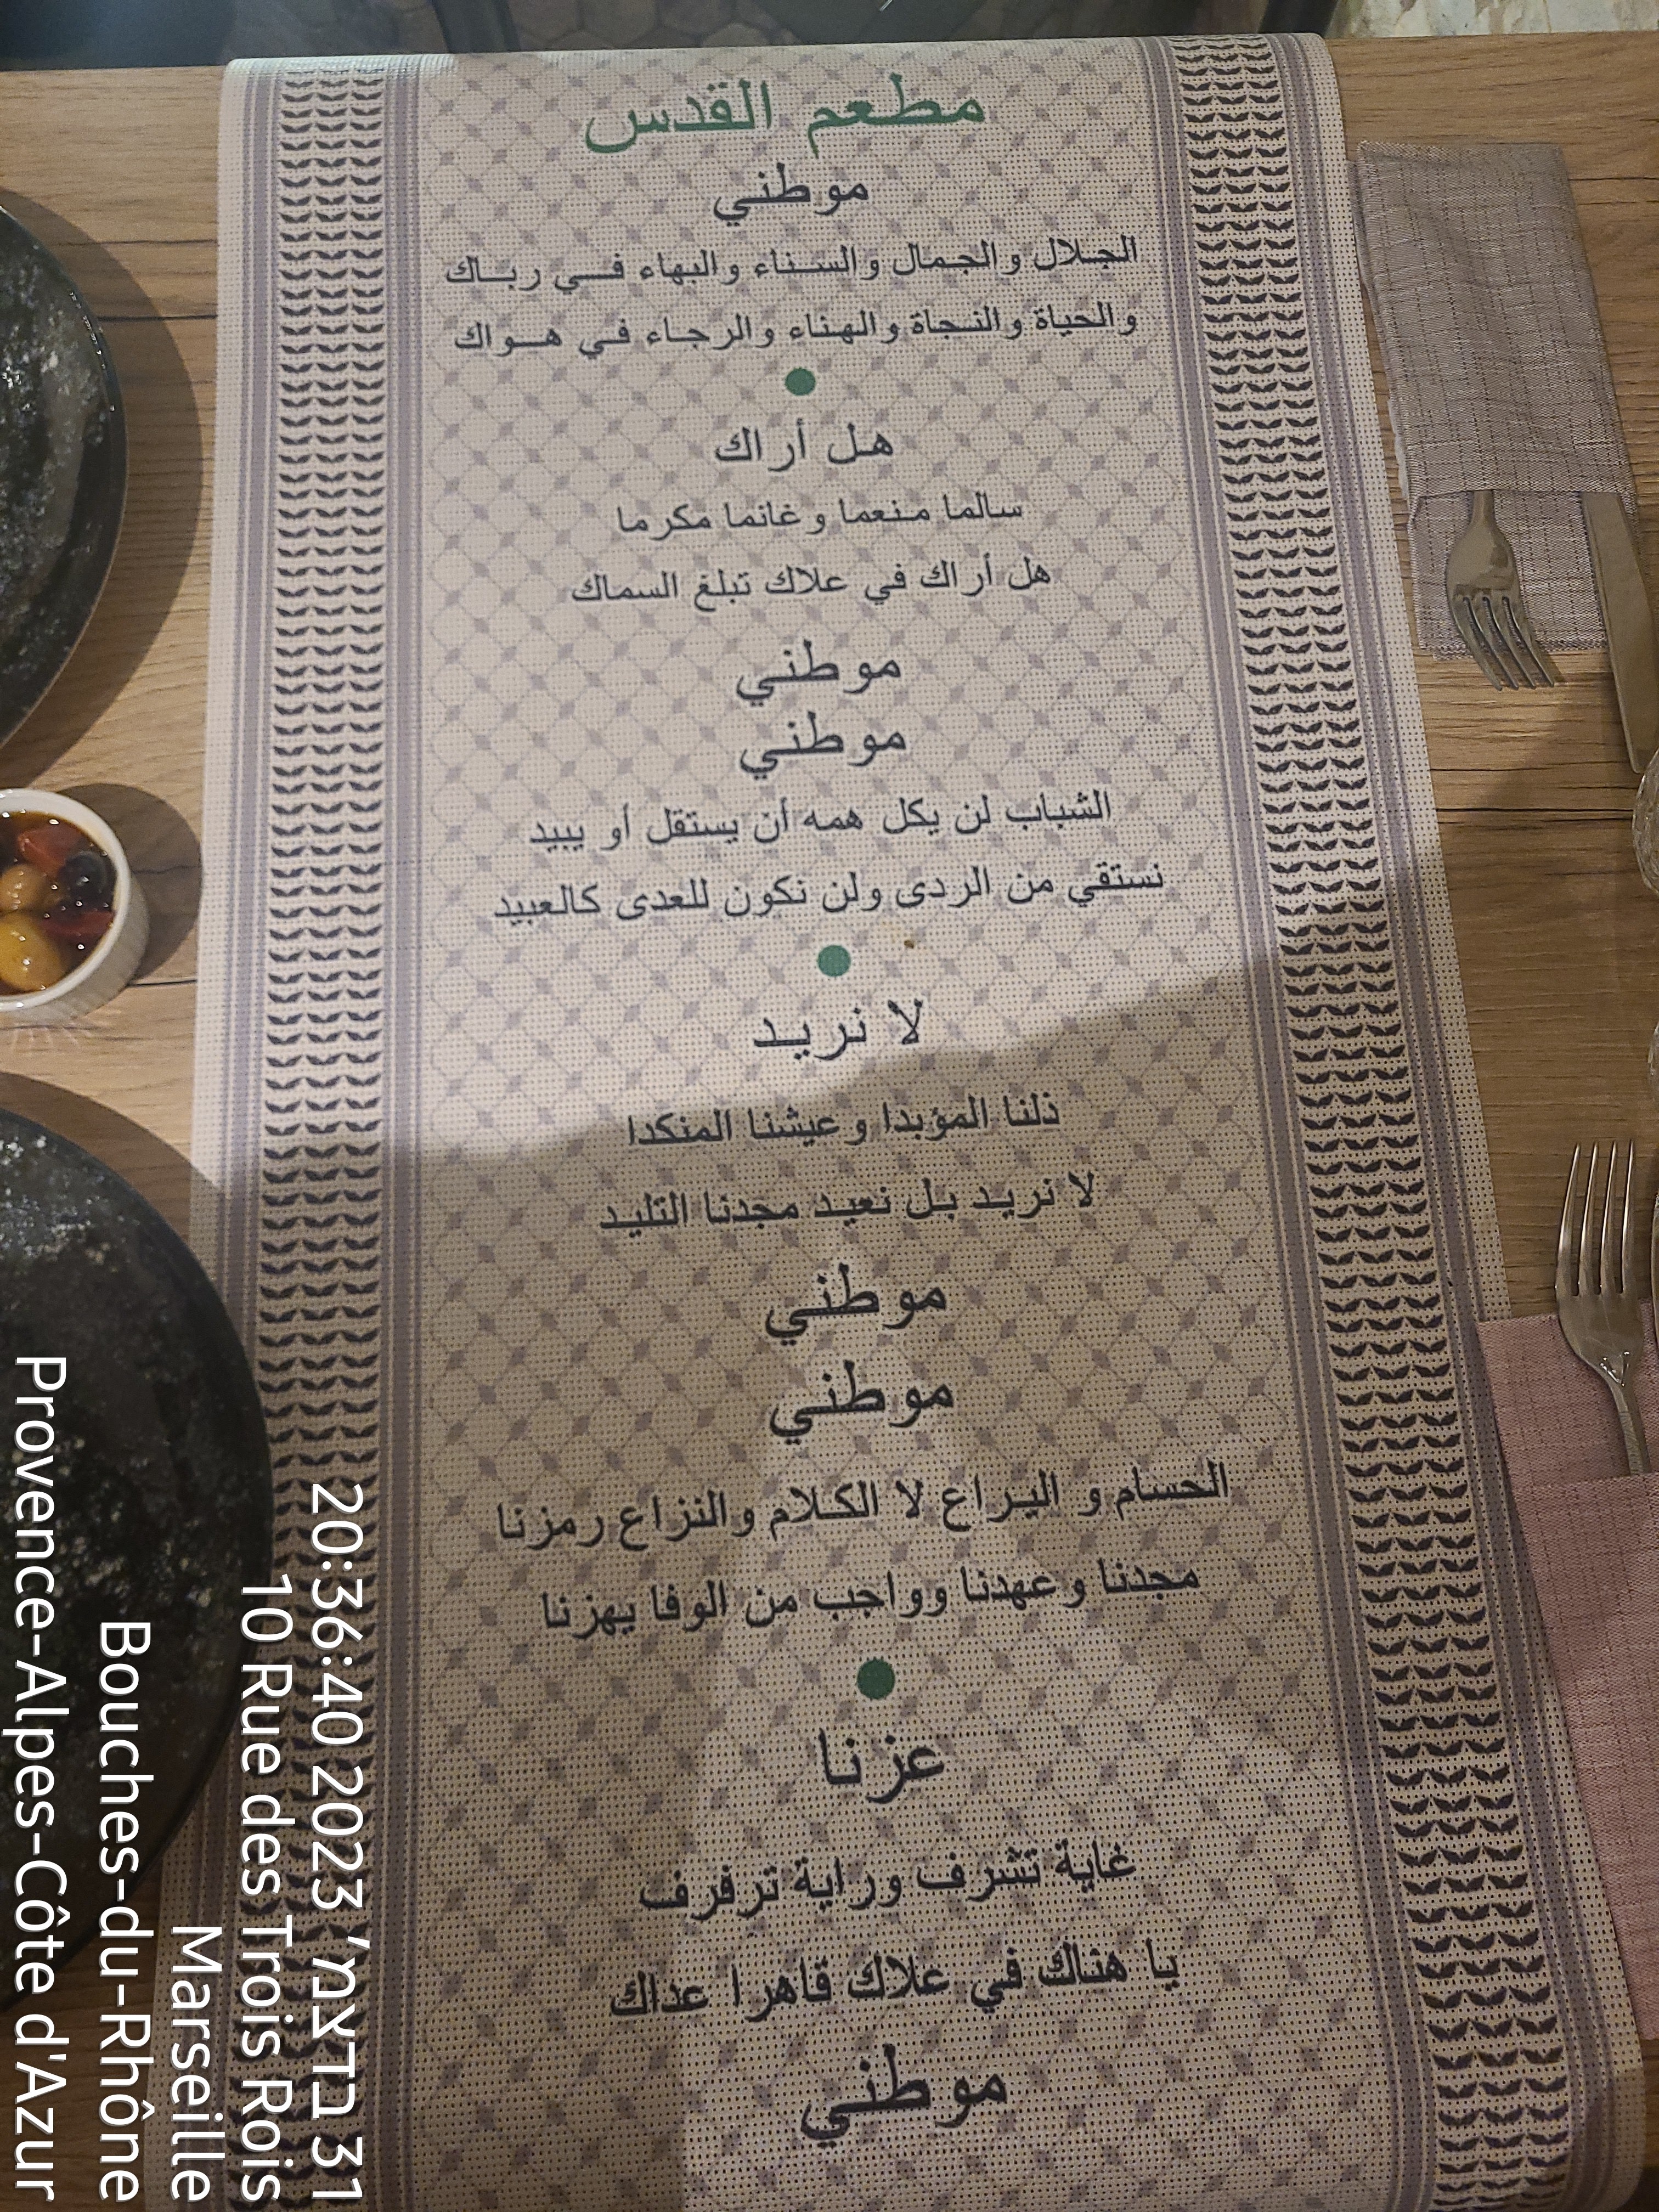 مطعم القدس
موطني
الجلال والجمال والسناء والبهاء في رباك
والحياة والنجاة والهناء والرجاء في هواك
هل أراك
سالما منعما وغانما مكرما
هل أراك في علاك تبلغ السماك
موطني
موطني
الشباب لن يكل همه أن يستقل أو يبيد
نستقي من الردى ولن نكون للعدى كالعبيد
لا نريد
ذلنا المؤبدا وعيشنا المنكدا
لا نريد بل نعيد مجدنا التليد
موطني
موطني
الحسام و اليراع لا الكلام والنزاع رمزنا
مجدنا وعهدنا وواجب من الوفا يهزنا
عزنا
غاية تشرف وراية ترفرف
يا هناك في علاك قاهرا عداك
موطني
31 בדצמ׳ 2023 20:36:40
10 Rue des Trois Rois
Marseille
Bouches-du-Rhône
Provence-Alpes-Côte d'Azur